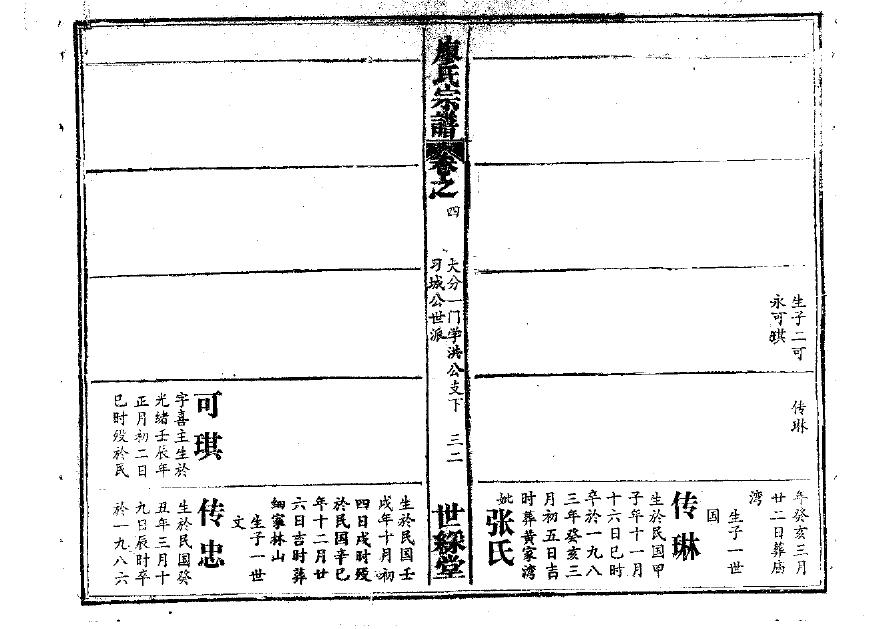 生子二可
永可琪
传琳
年癸亥三月
廿二日葬庙
湾
生子一世
国
传琳
生於民国甲
子年十一月
十六日巳时
卒於一九八
三年癸亥三
月初五日吉
时葬黄家湾
妣张氏
生於民国壬
戌年十月初
四日戌时殁
於民国辛巳
年十二月廿
六日吉时葬
细寧林山
生子一世
文
廖氏宗譜
卷之四
大分一门学洪公支下
习城公世派
三二
世綵堂
可琪
字喜主生於
光绪壬辰年
正月初二日
巳时殁於民
传忠
生於民国癸
丑年三月十
九日辰时卒
於一九八六